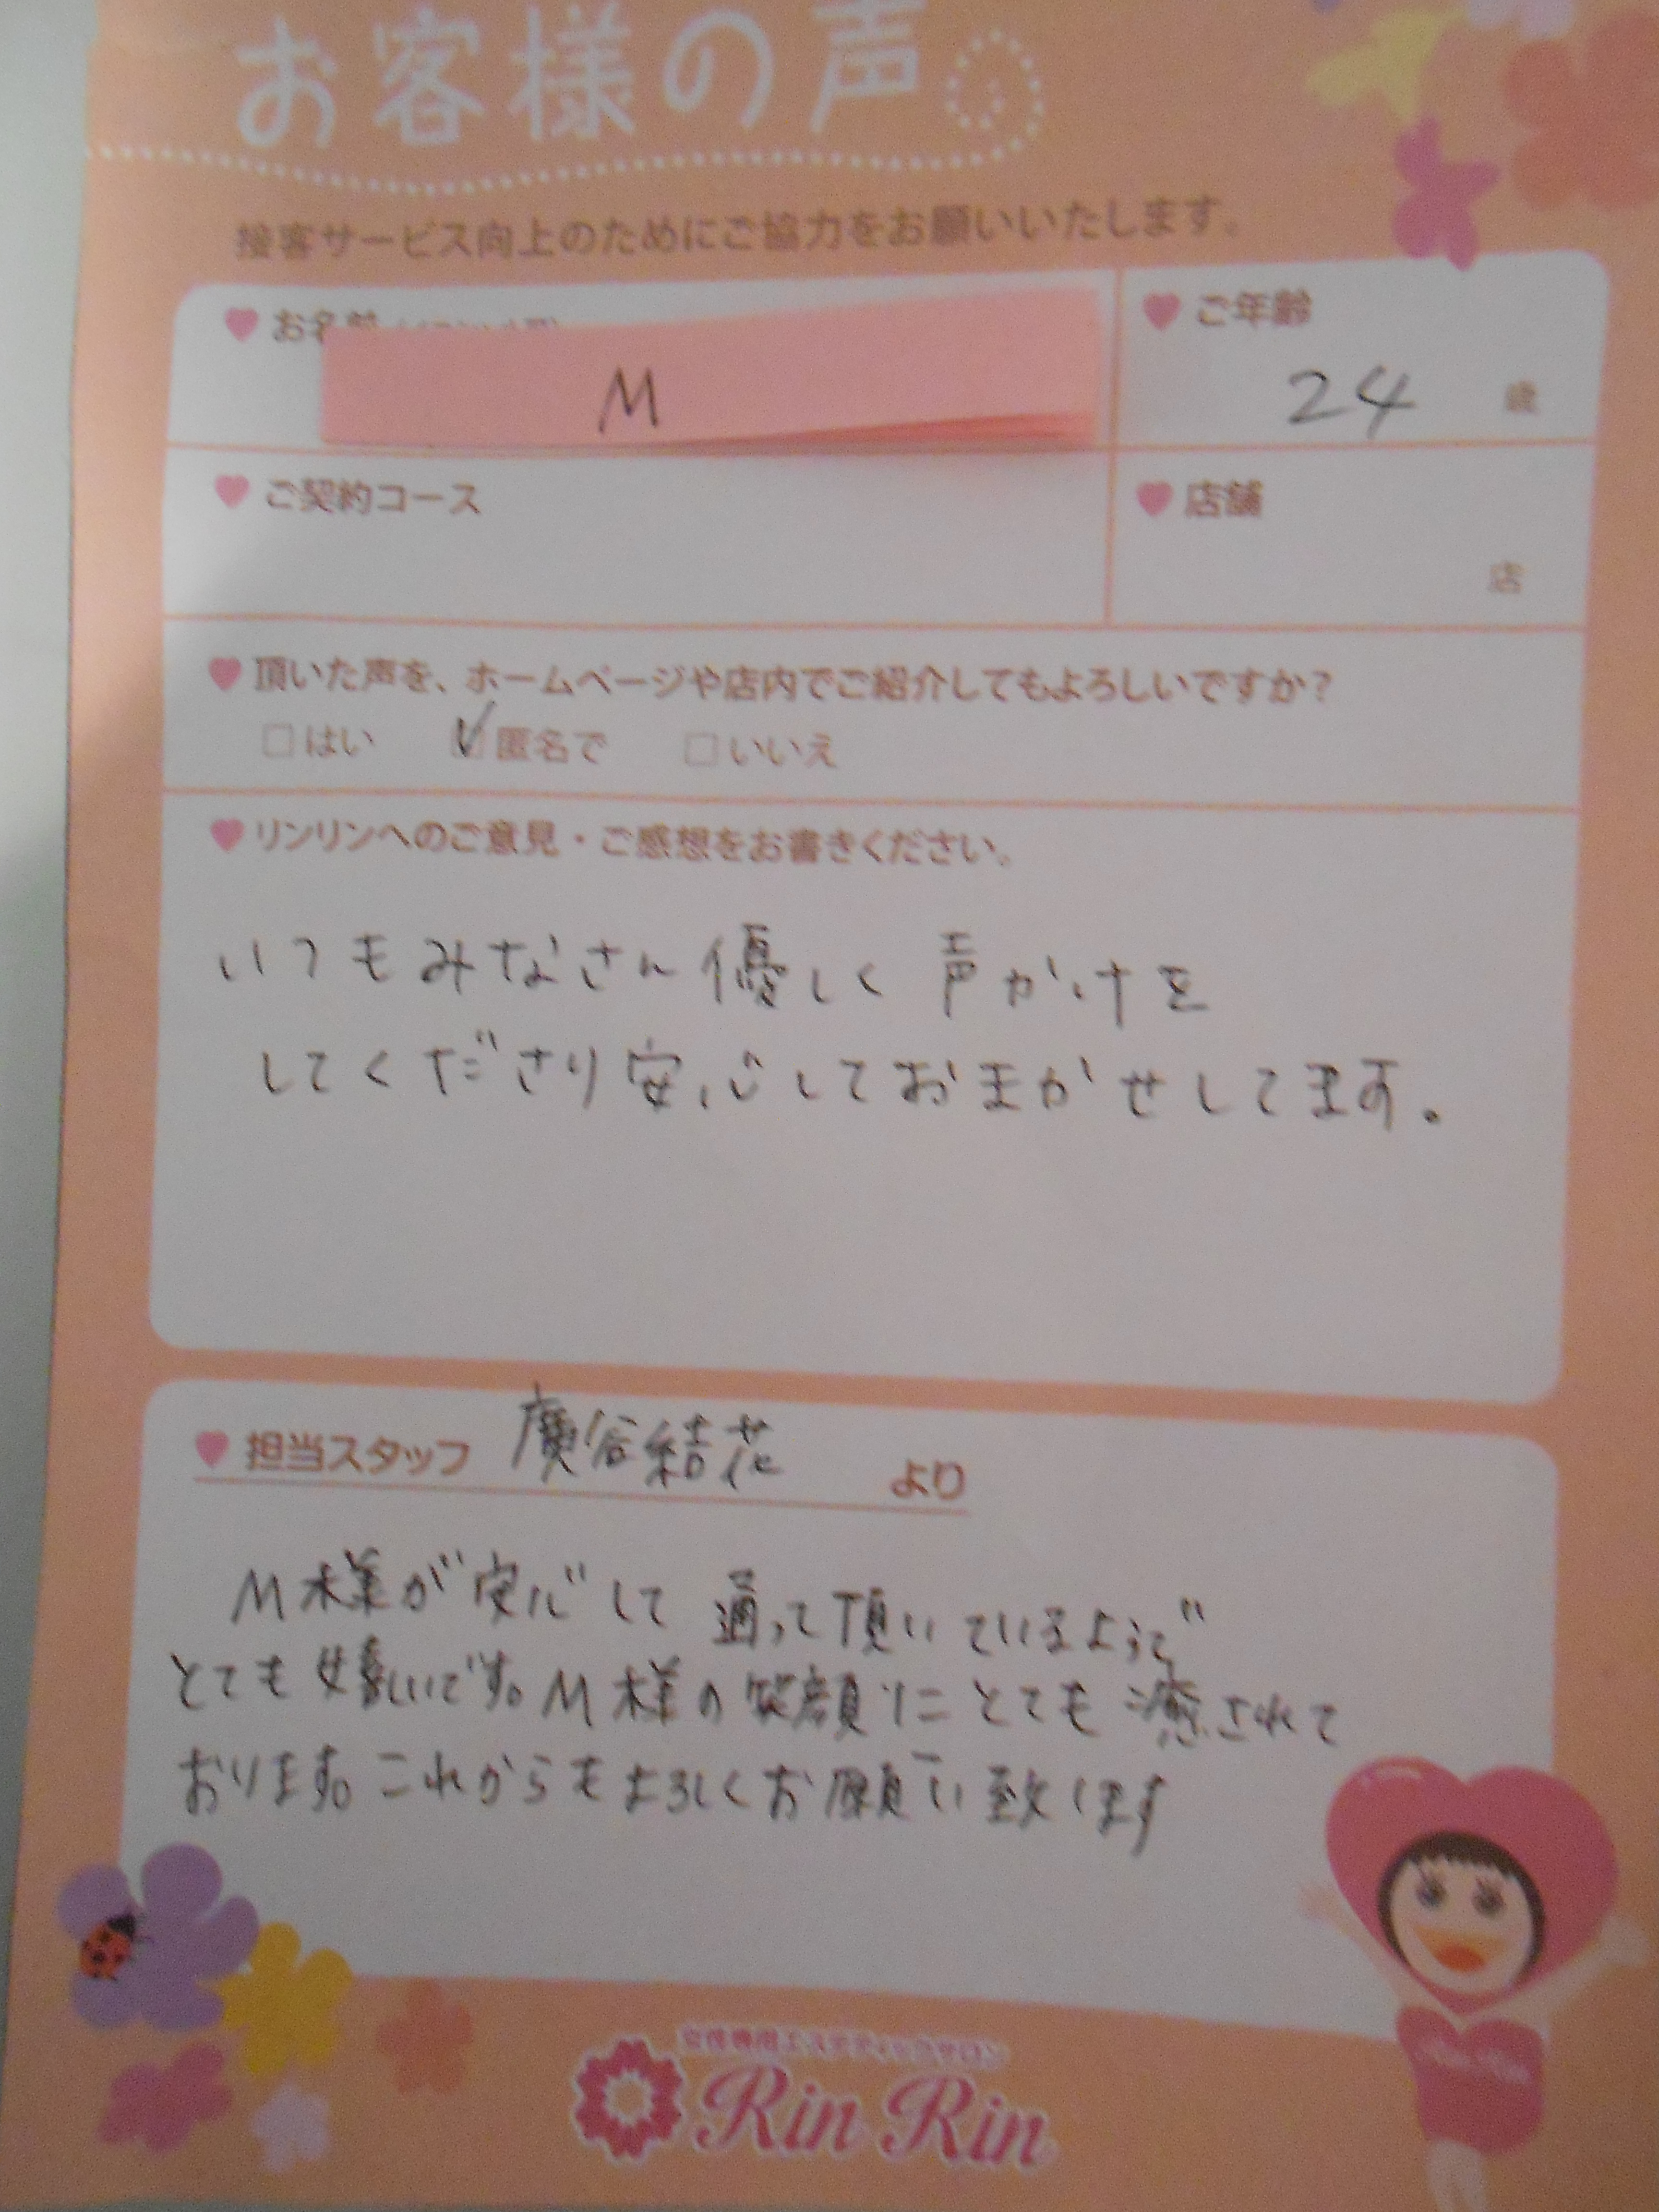 お客様の声
接客サービス向上のためにご協力をお願いいたします。
お名前
M
ご年齢
24 歳
ご契約コース
店舗
店
頂いた声を、ホームページや店内でご紹介してもよろしいですか？
□はい ☑匿名で □いいえ
リンリンへのご意見・ご感想をお書きください。
いつもみなさん優しく声かけを
してくださり安心しておまかせしてます。
担当スタッフ 廣谷結花 より
M様が安心して通って頂いているようで
とても嬉しいです。M様の笑顔にとても癒されて
おります。これからもよろしくお願い致します
女性専用エステティックサロン
Rin Rin
Rin Rin